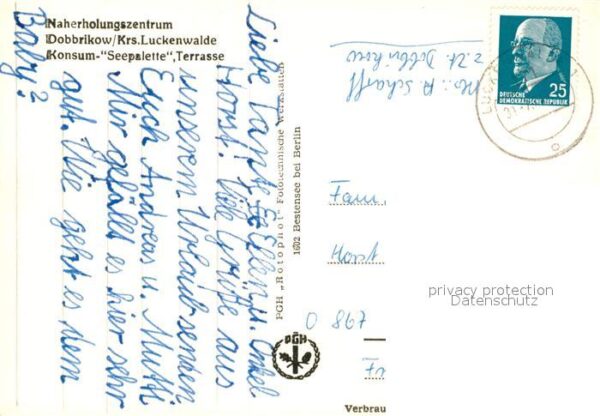 Naherholungszentrum
Dobbrikow/Krs.Luckenwalde
Konsum-"Seepalette",Terrasse
Liebe Tante Ellen u. Onkel
Horst. Viele Grüße aus
unserem Urlaub senden
Euch Andreas u. Mutti.
Mir gefällt es hier sehr
gut. Wie geht es dem
Baby?
PGH „Rotophot" Fototechnische Werkstätten
1602 Bestensee bei Berlin
PGH
R. Scharf
z. Zt. Dobbrikow
DEUTSCHE
DEMOKRATISCHE REPUBLIK
25
Fam.
Horst
privacy protection
Datenschutz
O 897
Verbrau